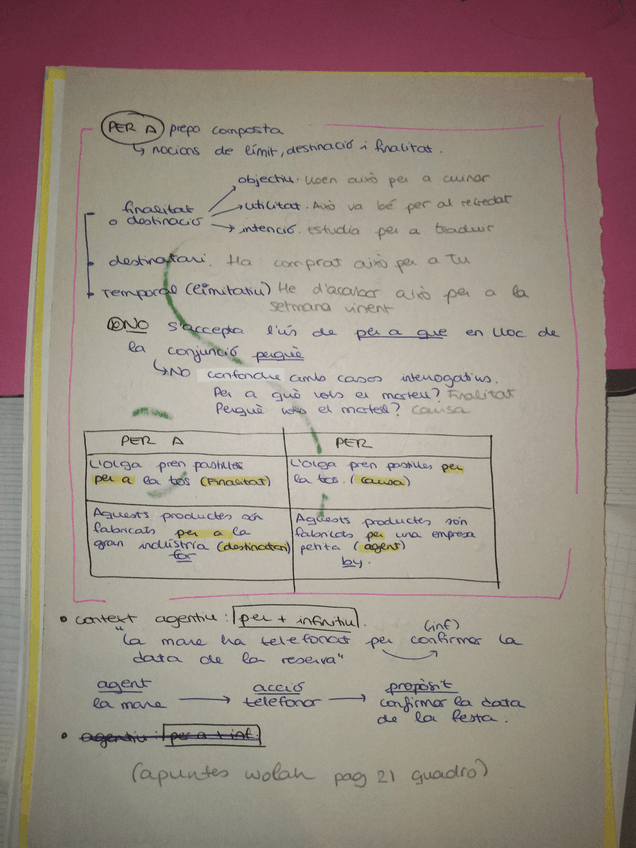 PER A prepo composta
↳ nocions de límit, destinació i finalitat.
objectiu. Usen això per a cuinar
finalitat o destinació
utilitat. Això va bé per al refredat
intenció. Estudia per a traduir
destinatari. Ha comprat això per a tu
temporal (limitatiu) He d'acabar això per a la
setmana vinent
NO s'accepta l'ús de per a que en lloc de
la conjunció perquè
↳ No confondre amb casos interrogatius.
Per a què vols el martell? Finalitat
Perquè vols el martell? Causa
PER A
PER
L'Olga pren pastilles
per a la tos (Finalitat)
L'Olga pren pastilles per
la tos. (causa)
Aquests productes són
fabricats per a la
gran indústria (destinatari)
for
Aquests productes són
fabricats per una empresa
petita (agent)
by.
• context agentiu: per + infinitiu.
(inf)
"La mare ha telefonat per confirmar la
data de la reserva"
agent acció propòsit
la mare → telefonar → confirmar la data
de la festa.
• agentiu: per a + inf.
(apuntes wolah pag 21 quadro)